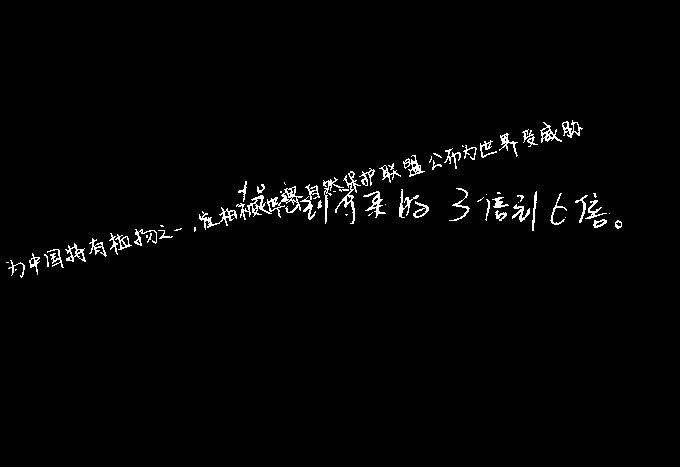 为中国特有植物之一，崖柏被世界自然保护联盟公布为世界受威胁
到芥菜的3倍到6倍。